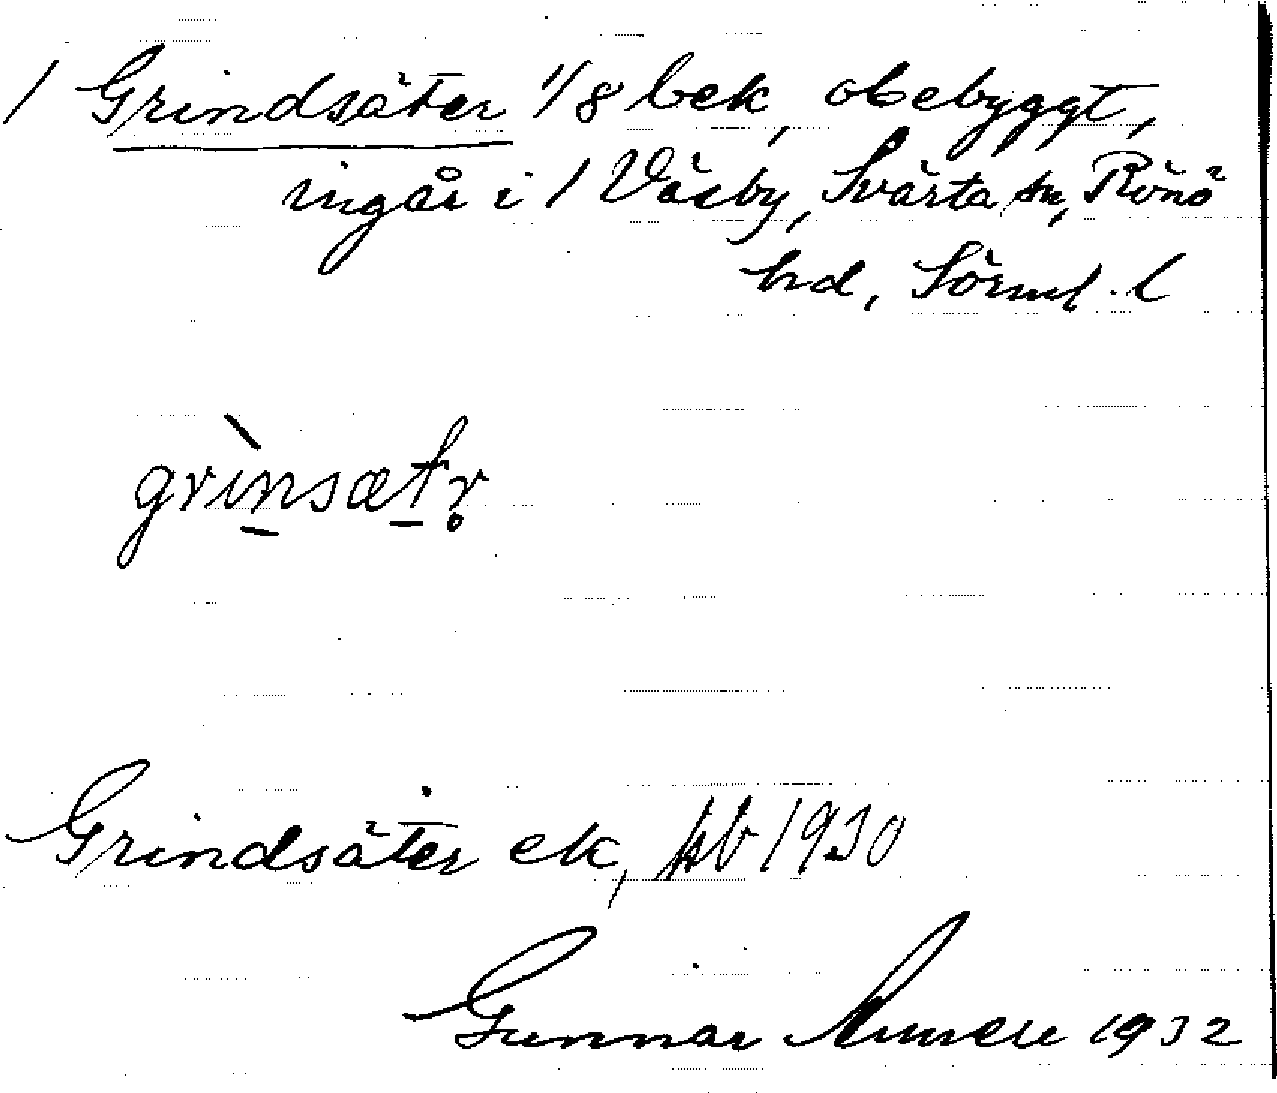 1 Grindsäter 1/8 bek, obebyggt,
ingår i 1 Väsby, Svärta sn, Rönö
hd, Sörml. l
grìnsætr̥
Grindsäter ek, psb 1930
Gunnar 1932